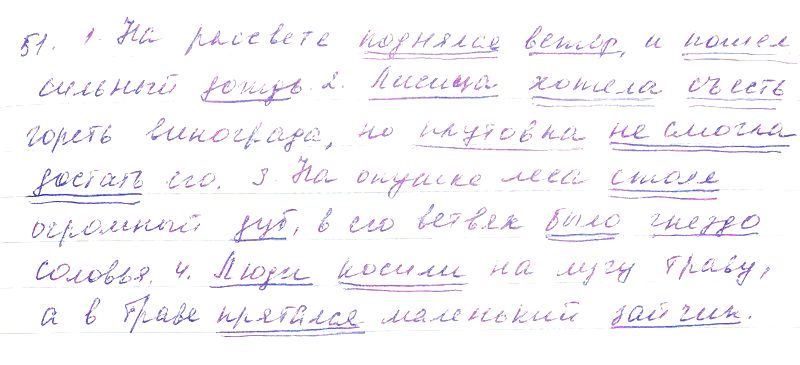 51. 1. На рассвете поднялся ветер, и пошел
сильный дождь. 2. Лисица хотела съесть
горсть винограда, но плутовка не смогла
достать его. 3. На опушке леса стоял
огромный дуб, в его ветвях было гнездо
соловья. 4. Люди косили на лугу траву,
а в траве прятался маленький зайчик.